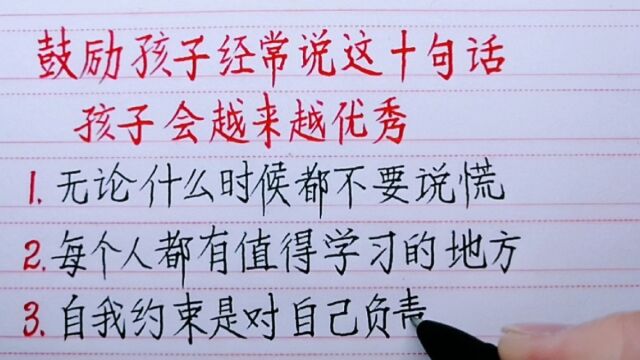 鼓励孩子经常说这十句话
孩子会越来越优秀
1.无论什么时候都不要说慌
2.每个人都有值得学习的地方
3.自我约束是对自己负责